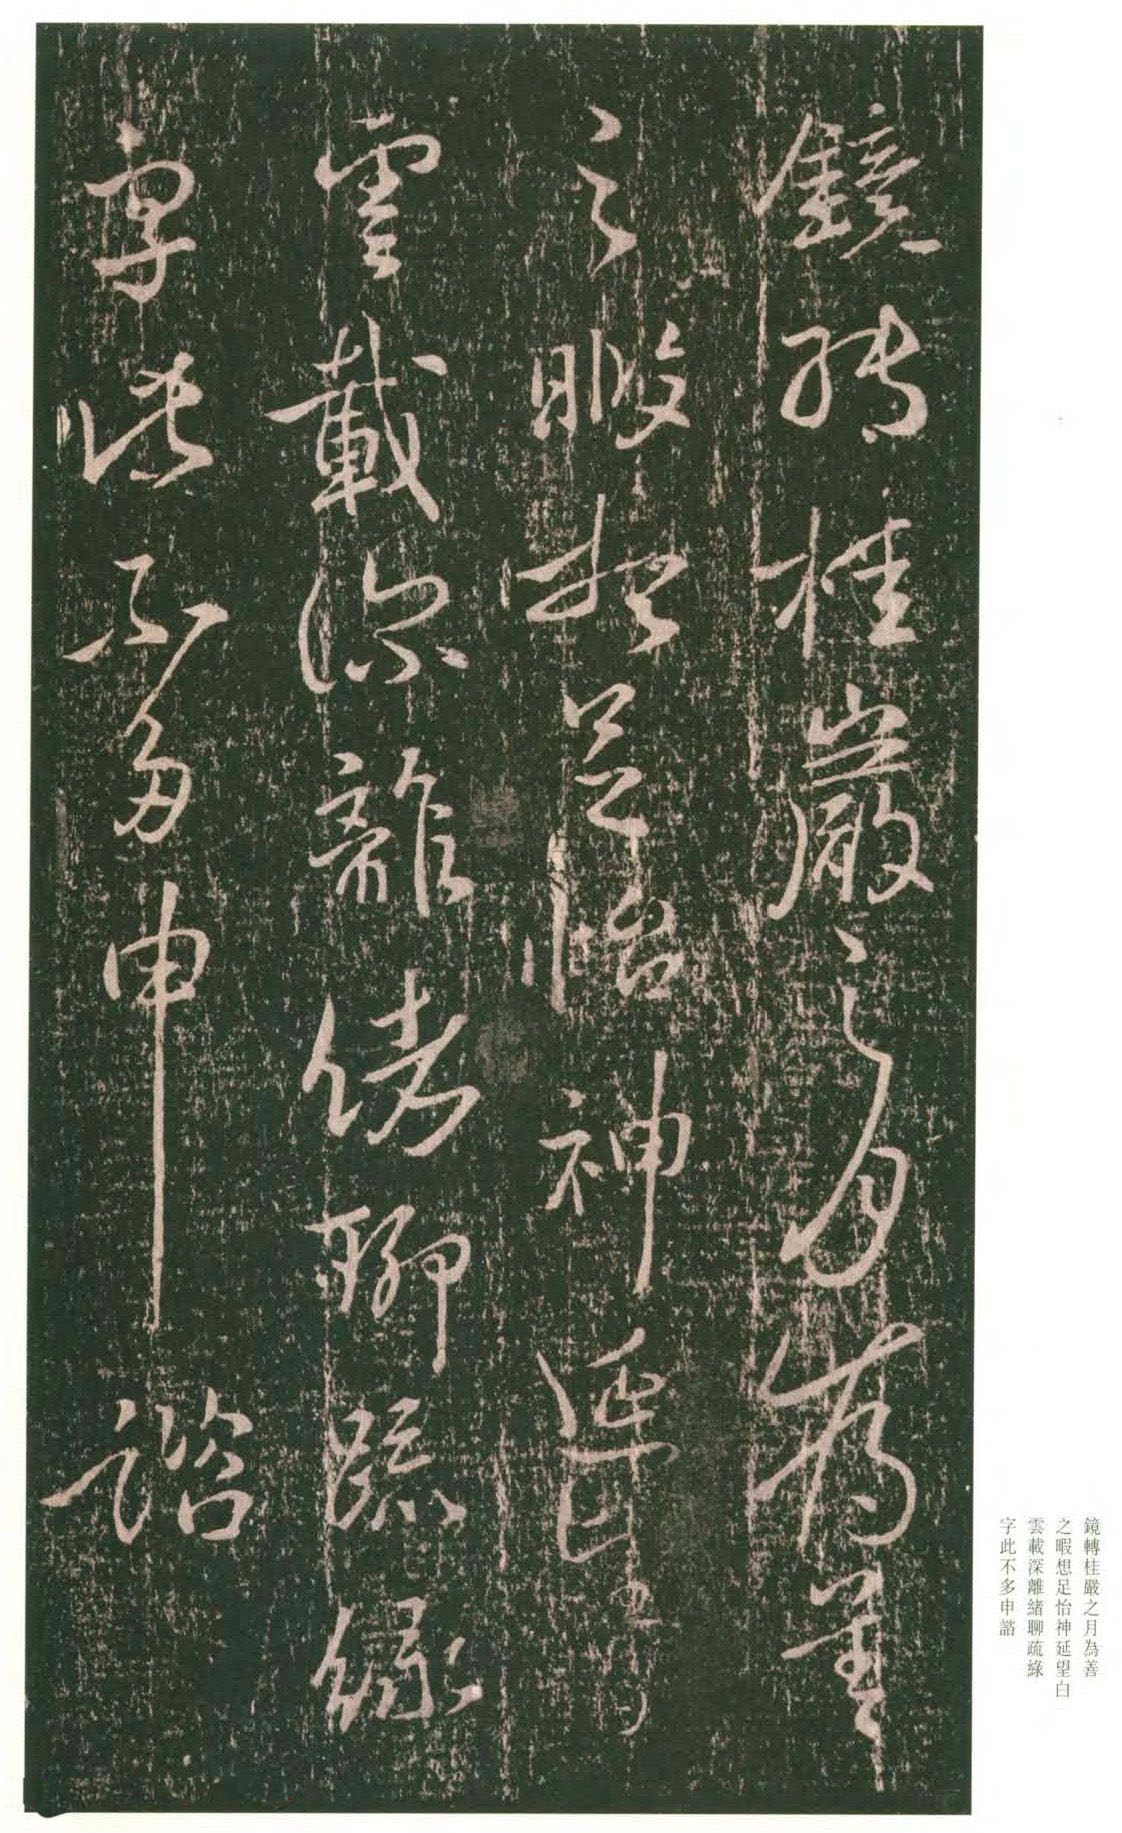 鏡轉桂巖之月為善
之暇想足怡神延望白
雲載深離緒聊疏綠
字此不多申諮
鏡轉桂嚴之月為善
之暇想足怡神延望白
雲載深離緒聊疏綠
字此不多申諮